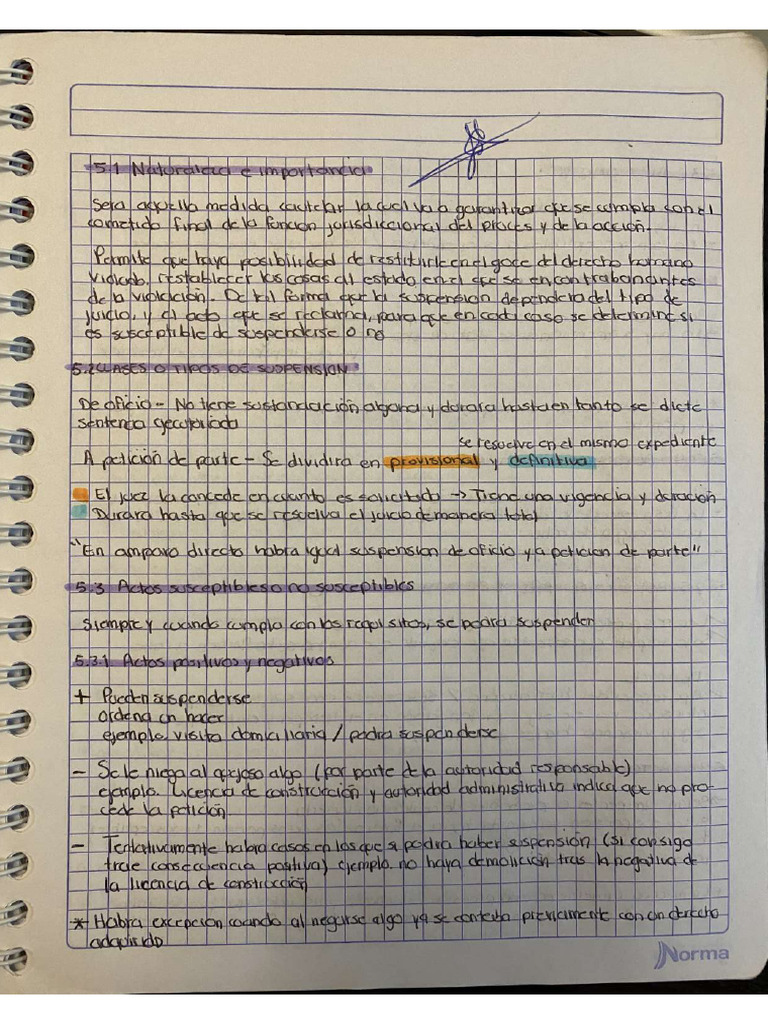 5.1 Naturaleza e importancia
Sera aquella medida cautelar la cual va a garantizar que se cumpla con el
cometido final de la funcion jurisdiccional del proceso y de la acción.
Permite que haya posibilidad de restituirle en el goce del derecho humano
violado, restablecer las cosas al estado en el que se encontraban antes
de la violación. De tal forma que la suspension dependera del tipo de
juicio, y el acto que se reclama, para que en cada caso se determine si
es susceptible de suspenderse o no
5.2 CLASES O TIPOS DE SUSPENSION
De oficio - No tiene sustanciación alguna y durara hasta en tanto se dicte
sentencia ejecutoriada
se resuelve en el mismo expediente
A petición de parte - Se dividira en provisional y definitiva
El juez la concede en cuanto es solicitado → Tiene una vigencia y duración
Durara hasta que se resuelva el juicio de manera total
"En amparo directo habra igual suspension de oficio y a peticion de parte"
5.3 Actos susceptibles o no susceptibles
Siempre y cuando cumpla con los requisitos, se podra suspender
5.3.1 Actos positivos y negativos
+ Pueden suspenderse
ordena un hacer
ejemplo visita domiciliaria / podra suspenderse
- Se le niega al quejoso algo (por parte de la autoridad responsable)
ejemplo. Licencia de construcción y autoridad administrativa indica que no pro-
cede la petición
- Tentativamente habra casos en los que si podra haber suspensión (si consigo
trae consecuencia positiva) ejemplo. no haya demolición tras la negativa de
la licencia de construcción
* Habra excepción cuando al negarse algo ya se contaba previamente con un derecho
adquirido
Norma